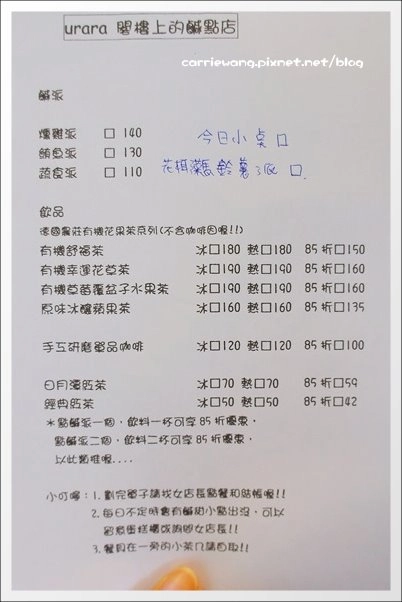 urara 閣樓上的鹹點店
carriewang.pixnet.net/blog
鹹派
燻雞派 □ 140
鮪魚派 □ 130
蔬食派 □ 110
今日小桌 □
花椰菜馬鈴薯派 □
飲品
德國農莊有機花果茶系列(不含咖啡因喔!!)
有機舒福茶 冰□180 熱□180 85折□150
有機幸運花草茶 冰□190 熱□190 85折□160
有機草莓覆盆子水果茶 冰□190 熱□190 85折□160
原味冰釀蘋果茶 冰□160 熱□160 85折□135
手工研磨單品咖啡 冰□120 熱□120 85折□100
日月潭紅茶 冰□70 熱□70 85折□59
經典紅茶 冰□50 熱□50 85折□42
＊點鹹派一個，飲料一杯可享85折優惠，
點鹹派二個，飲料二杯可享85折優惠，
以此類推喔....
小叮嚀：1.劃完單子請找女店長點餐和結帳喔!!
2.每日不定時會有鹹甜小點出沒，可以
留意蛋糕櫃或詢問女店長!!
3.餐具在一旁的小茶几請自取!!